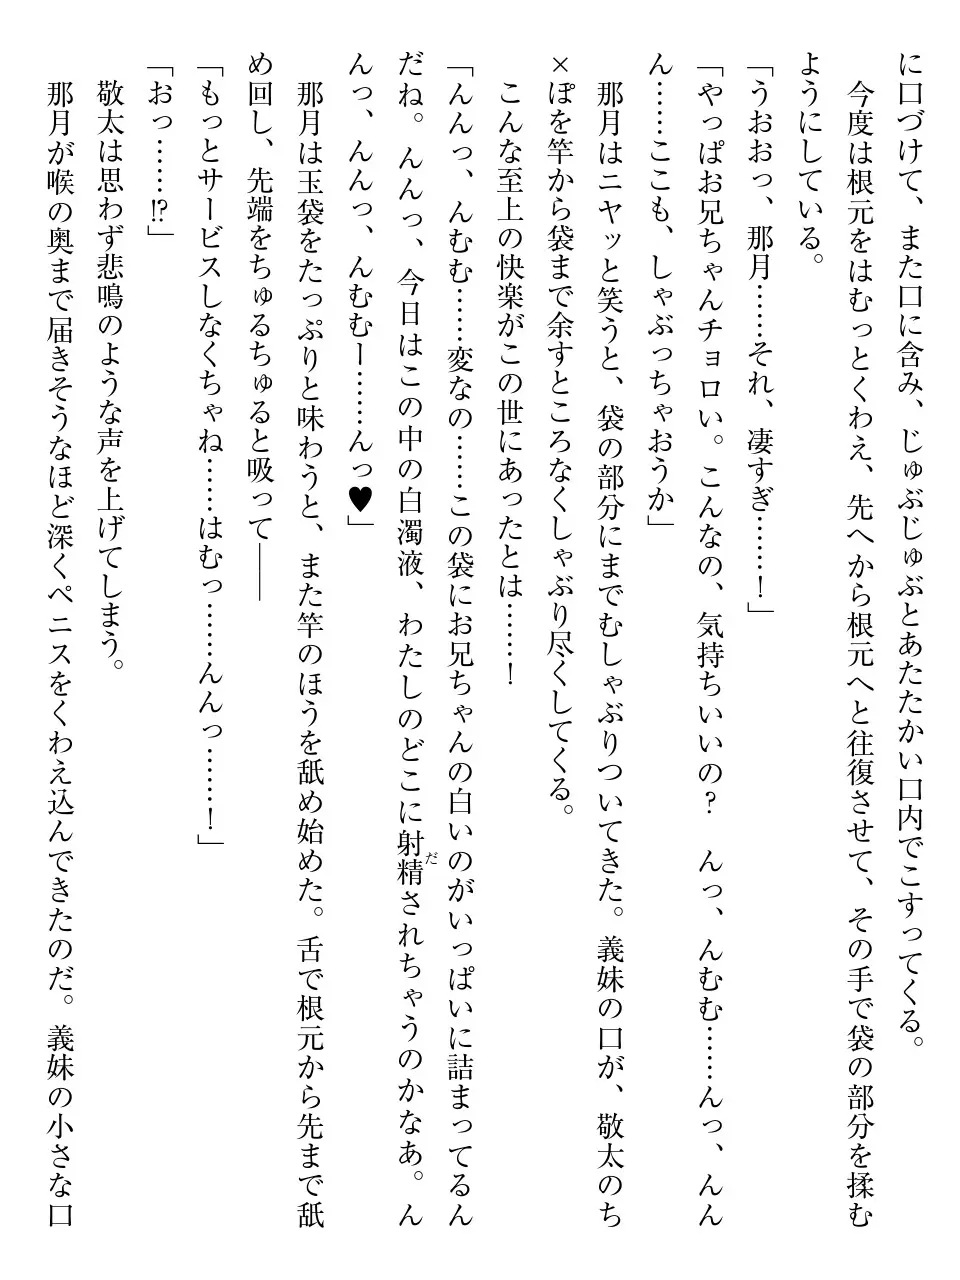 に口づけて、また口に含み、じゅぶじゅぶとあたたかい口内でこすってくる。
　今度は根元をはむっとくわえ、先へから根元へと往復させて、その手で袋の部分を揉む
ようにしている。
「うおおっ、那月……それ、凄すぎ……！」
「やっぱお兄ちゃんチョロい。こんなの、気持ちいいの？　んっ、んむむ……んっ、んん
ん……ここも、しゃぶっちゃおうか」
　那月はニヤッと笑うと、袋の部分にまでむしゃぶりついてきた。義妹の口が、敬太のち
×ぽを竿から袋まで余すところなくしゃぶり尽くしてくる。
　こんな至上の快楽がこの世にあったとは……！
「んんっ、んむむ……変なの……この袋にお兄ちゃんの白いのがいっぱいに詰まってるん
だね。んんっ、今日はこの中の白濁液、わたしのどこに射精されちゃうのかなあ。ん
んっ、んんっ、んむむー……んっ♥」
　那月は玉袋をたっぷりと味わうと、また竿のほうを舐め始めた。舌で根元から先まで舐
め回し、先端をちゅるちゅると吸って――
「もっとサービスしなくちゃね……はむっ……んんっ……！」
「おっ……!?」
　敬太は思わず悲鳴のような声を上げてしまう。
　那月が喉の奥まで届きそうなほど深くペニスをくわえ込んできたのだ。義妹の小さな口
だ